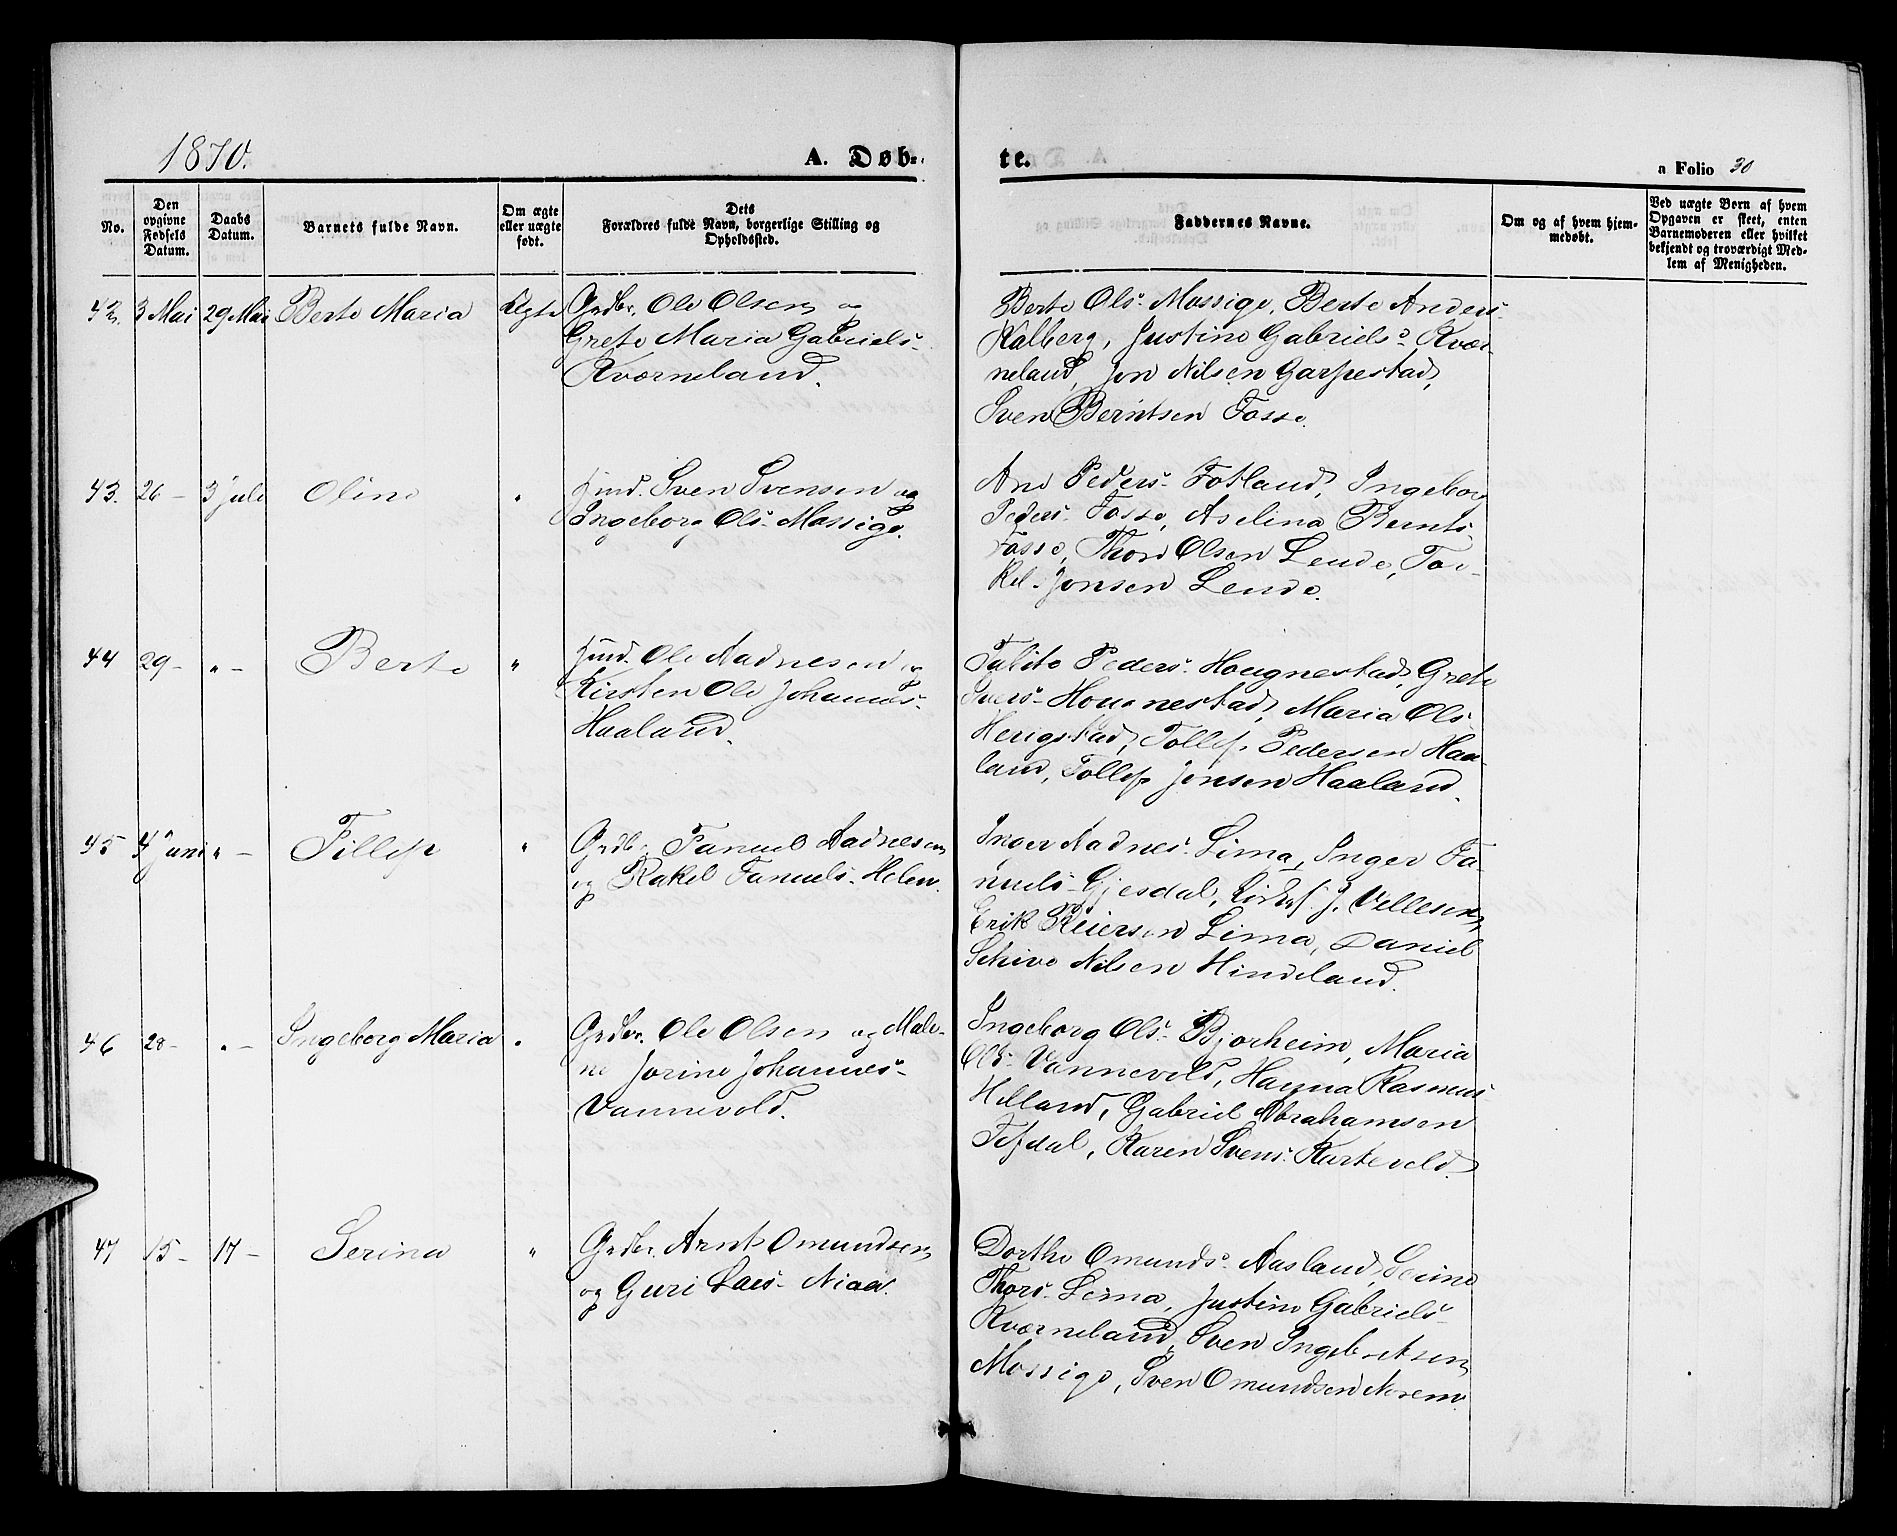 1870.
A. Døb-
te.
a Folio 30
No.
Den
opgivne
Fødsels
Datum.
Daabs
Datum.
Barnets fulde Navn.
Om ægte
eller uægte
født.
Dets
Forældres fulde Navn, borgerlige Stilling og
Opholdssted.
Faddernes Navne.
Om og af hvem hjem-
medøbt.
Ved uægte Børn af hvem
Opgaven er skeet, enten
Barnemoderen eller hvilket
bekjendt og troværdigt Med-
lem af Menigheden.
42. 3 Mai 29 Mai Berte Maria Ægte Grdbr. Ole Olsen og
Grete Maria Gabriels-
Kværneland.
Berte Ols- Mossige, Berte Anders-
Kalberg, Justine Gabriels- Kvær-
neland, Jon Nilsen Garpestad,
Sven Berntsen Fosse.
43. 26 - 3 Juli Oline " Hmd. Sven Svensen og
Ingeborg Ols- Mossige.
Ane Peders- Fotland, Ingeborg
Peders- Fosse, Aselina Bernts-
Fosse, Thore Olsen Lende, Tor-
kel Jonsen Lende.
44 29 - " - Berte " Hmd. Ole Aadnesen og
Kirsten Ole Johannes-
Haaland.
Talite Peders- Hougnestad, Grete
Ivers- Hougnestad, Maria Ols-
Herigstad, Tollef Pedersen Haa-
land, Tollef Jonsen Haaland.
45 4 Juni " - Fillep " Grdbr. Fanuel Aadnesen
og Rakel Fanuels- Helen.
Inger Aadnes- Lima, Inger Fa-
nuels- Gjesdal, J. Vellesen,
Erik Reiersen Lima, Daniel
Schive Nilsen Hindeland.
46 28 - " - Ingeborg Maria " Grdbr. Ole Olsen og Male-
ne Jorine Johannes-
Vannevold.
Ingeborg Ols- Bjorheim, Maria
Ols- Vannevold, Hanna Rasmus-
Helland, Gabriel Abrahamsen
Tefdal, Karen Svens- Kartevold.
47 15 - 17 - Serina " Grdbr. Arnt Omundsen
og Guri Lars- Niaa.
Dorthe Omunds- Aasland, Serine
Thors- Lima, Justine Gabriels-
Kværneland, Sven Ingebretsen
Mossige, Sven Omundsen Norem.